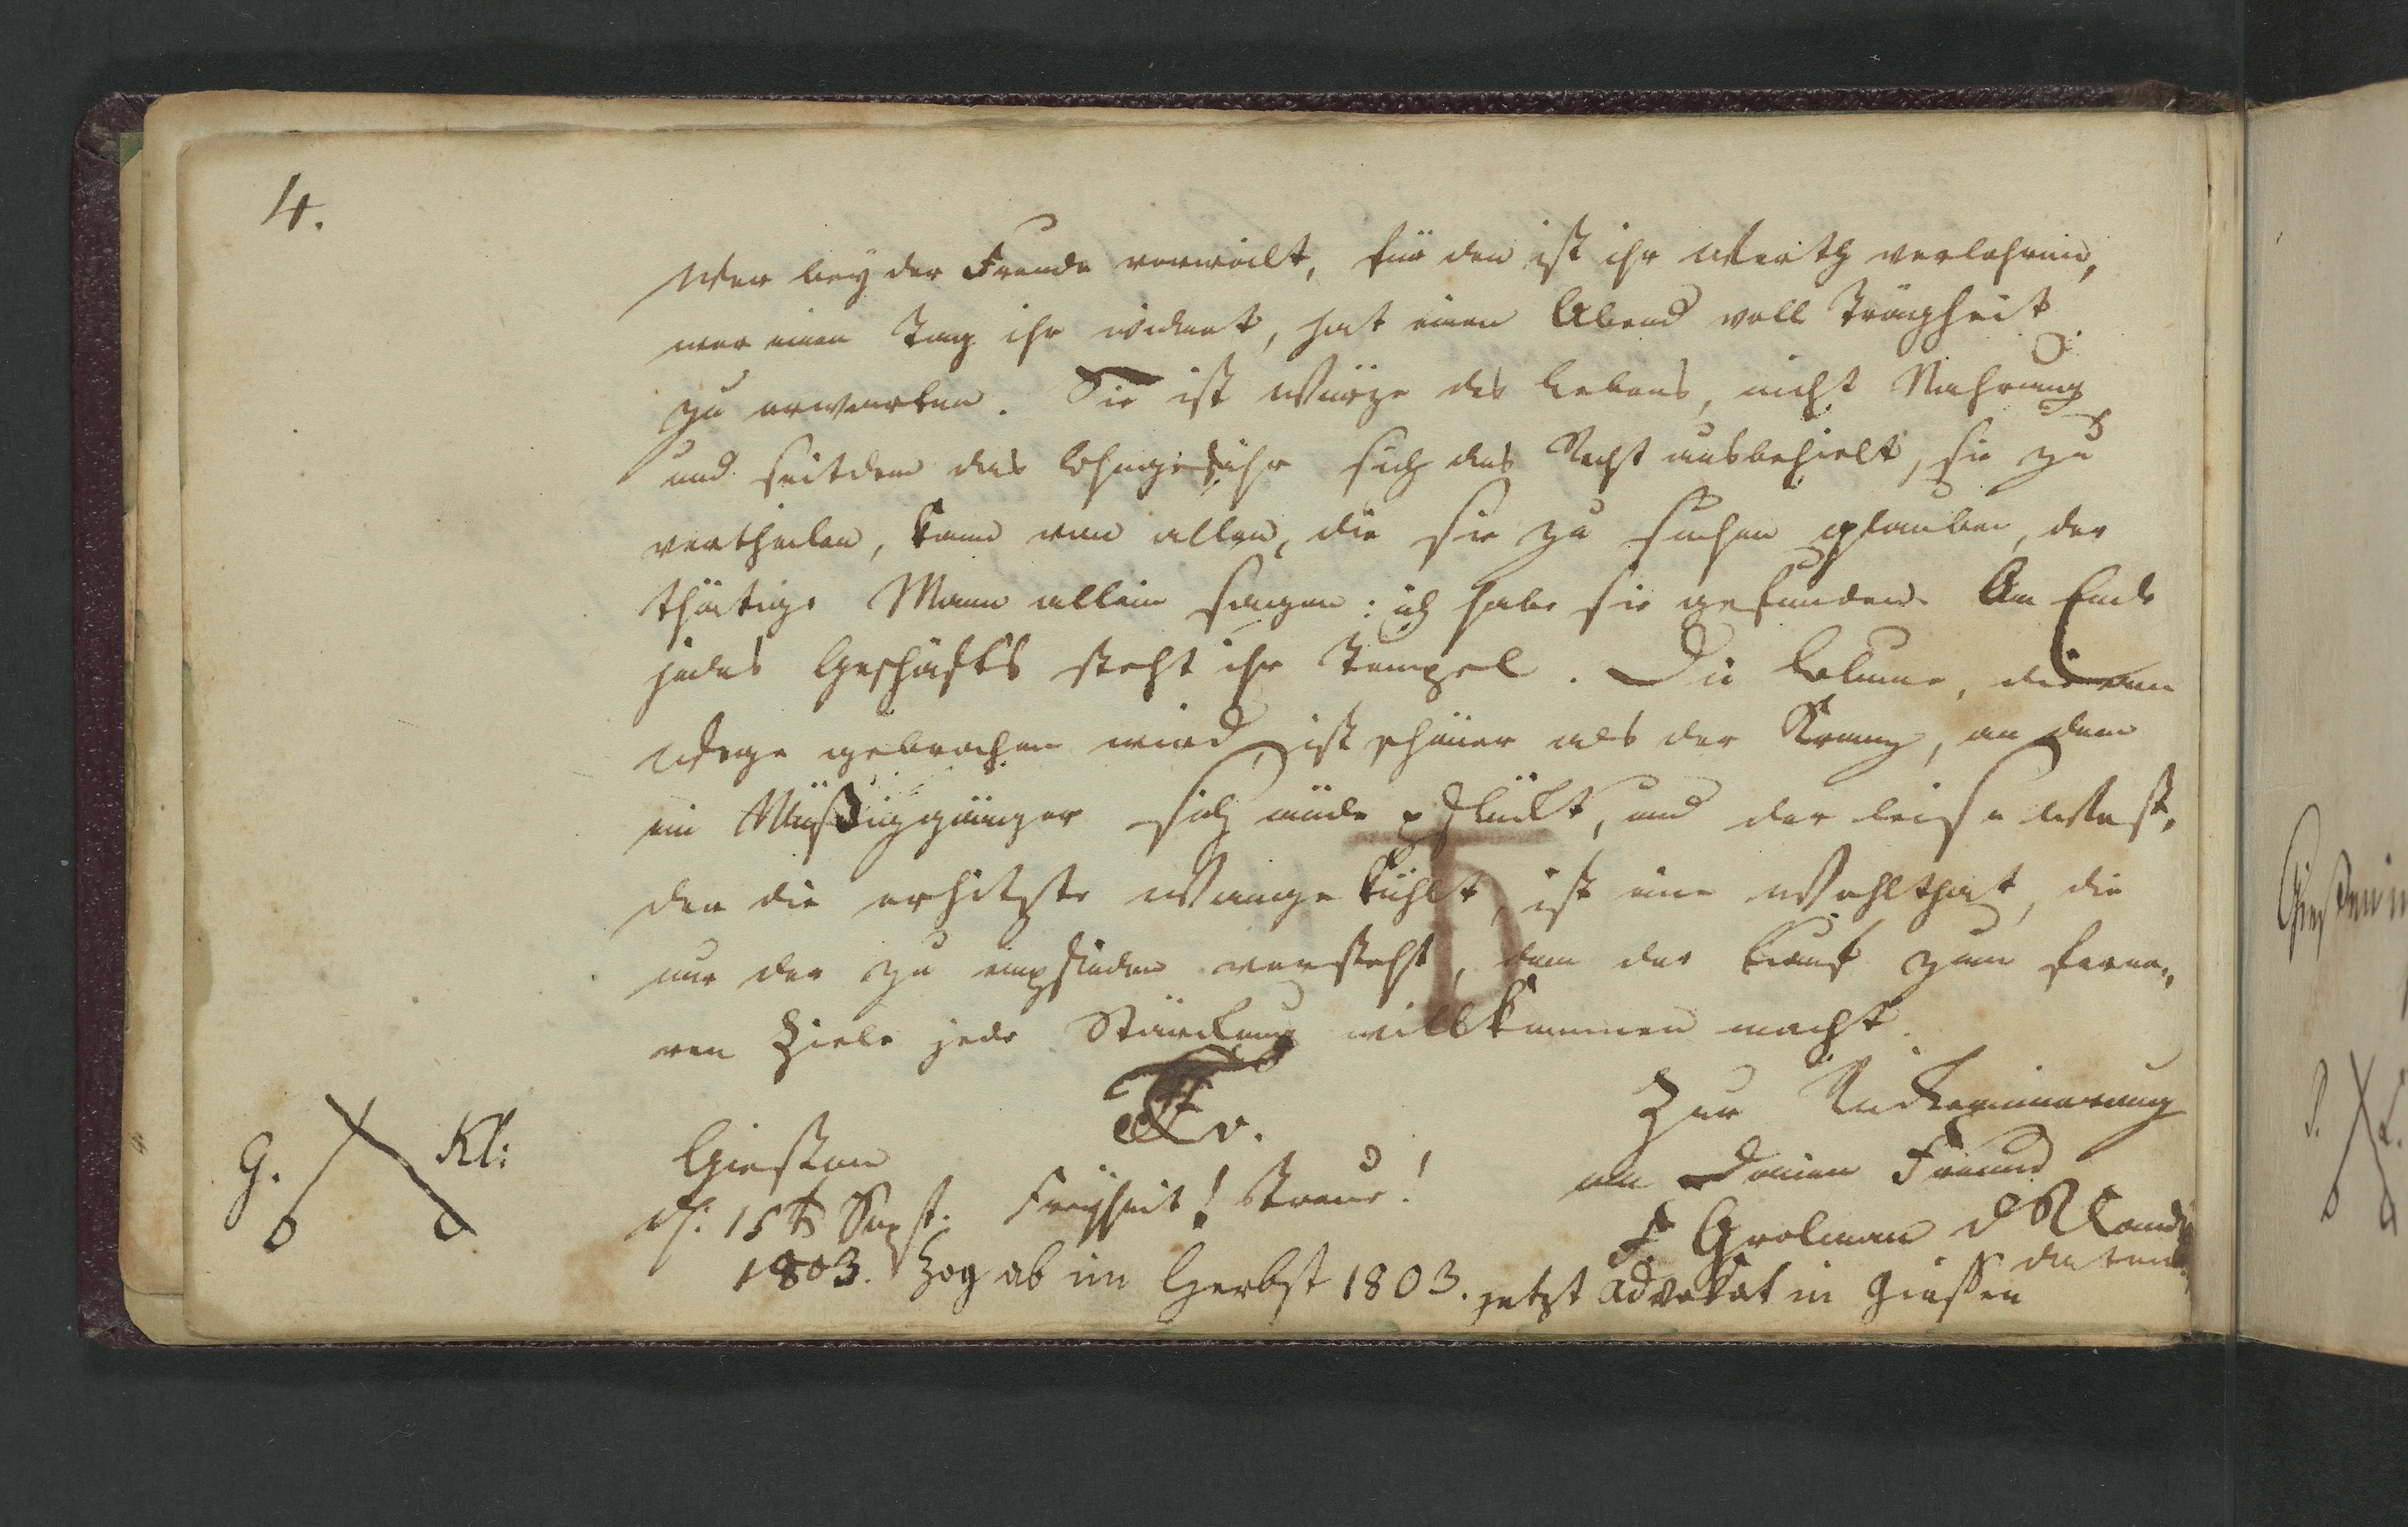 4.
Wer bey der Freude verweilt, für den ist ihr Werth verlohren,
wer einen Tag ihr widmet, hat einen Abend voll Trägheit
zu erwarten. Sie ist Würze des Lebens, nicht Nahrung
und seitdem das Ohngefähr sich das Recht ausbehielt, sie zu
vertheilen, kann von allen, die sie zu suchen glauben, der
thätige Mann allein sagen: ich habe sie gefunden. Am Ende
jedes Geschäfts steht ihr Tempel. Die Blume, die am
Wege gebrochen wird, ist schöner als der Kranz, an dem
ein Müßiggänger sich müde pflückt, und der leise West,
der die erhitzte Wange kühlt, ist eine Wohlthat, die
nur der zu empfinden versteht, dem der Lauf zum ferne-
ren Ziele jede Stärkung willkommen macht.
G. Kl:
Giessen
d. 15t Sept.
1803.
Freyheit! Treue!
Zur Rückerinnerung
an Deinen Freund
F. Grolman d R Kandi
daten
Zog ab im Herbst 1803. jetzt Advokat in Giessen